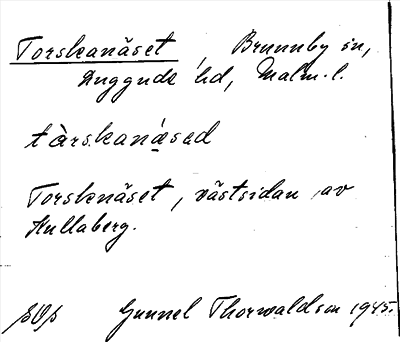 Torskanäset, Brunnby sn,
Luggude hd, Malm. l.
tàrskanä́sed
Torsknäset, västsidan av
Kullaberg.
Gunnel Thorwaldson 1945.